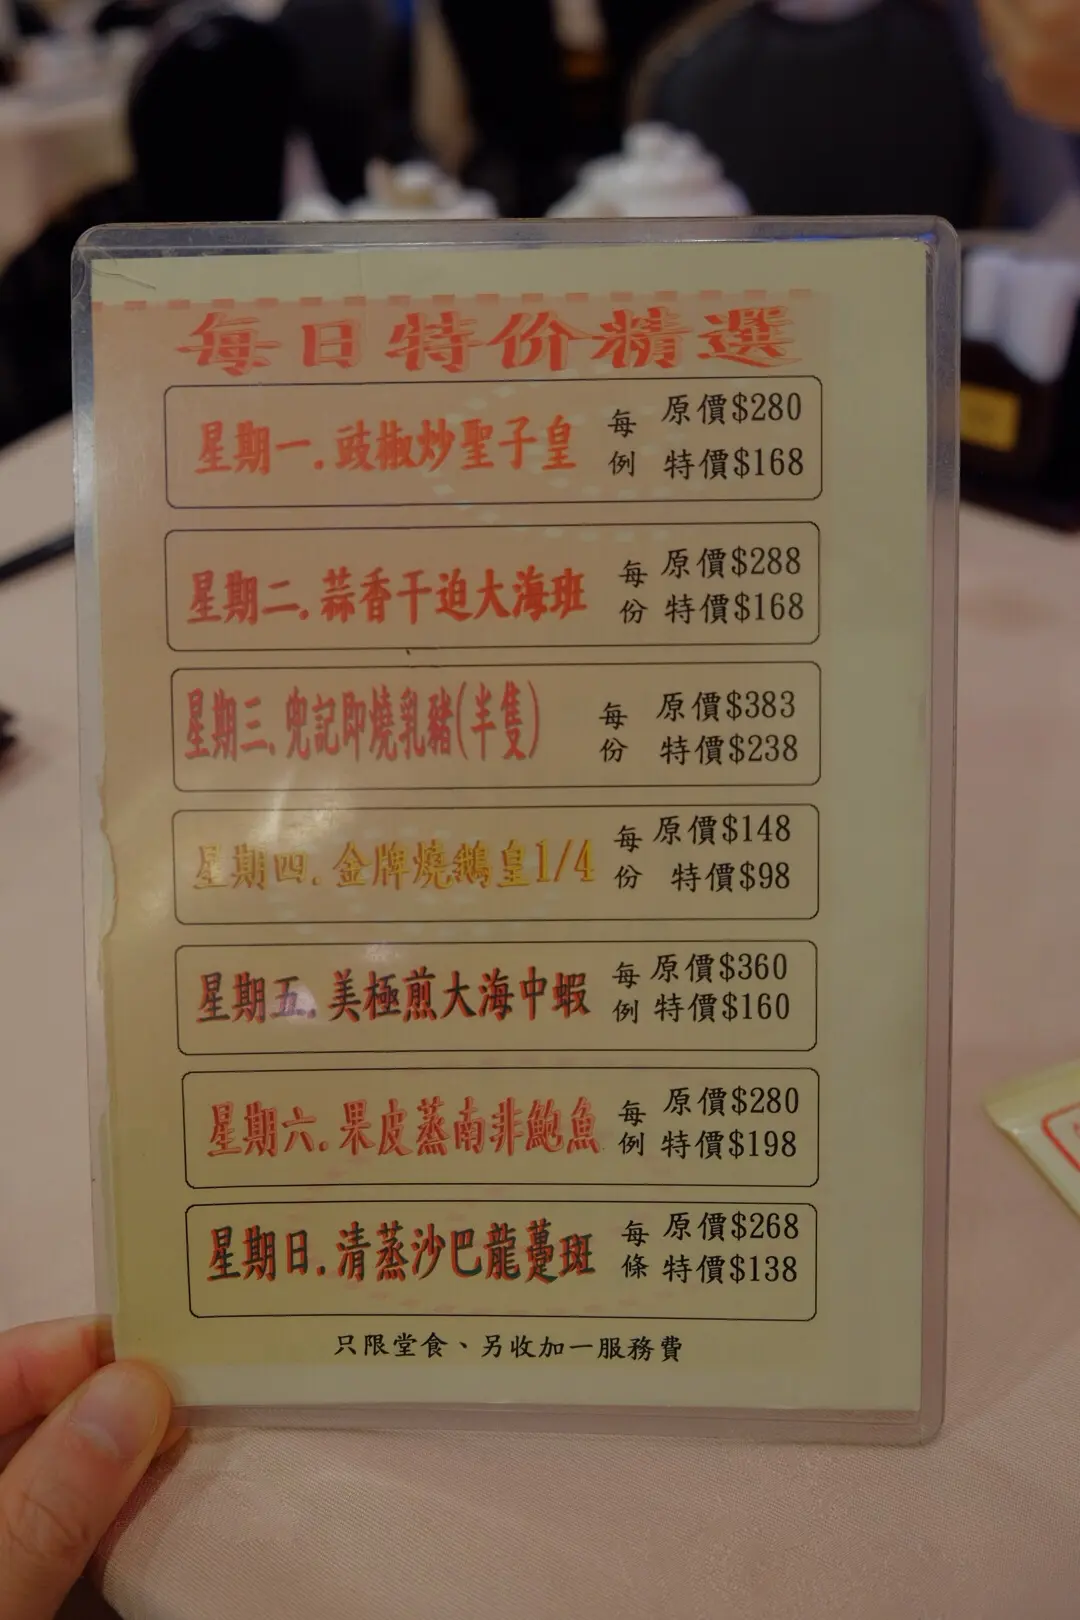 每日特价精選
星期一.豉椒炒聖子皇 每例 原價$280 特價$168
星期二.蒜香干迫大海班 每份 原價$288 特價$168
星期三.兜記即燒乳豬(半隻) 每份 原價$383 特價$238
星期四.金牌燒鵝皇1/4 每份 原價$148 特價$98
星期五.美極煎大海中蝦 每例 原價$360 特價$160
星期六.果皮蒸南非鮑魚 每例 原價$280 特價$198
星期日.清蒸沙巴龍躉斑 每條 原價$268 特價$138
只限堂食、另收加一服務費